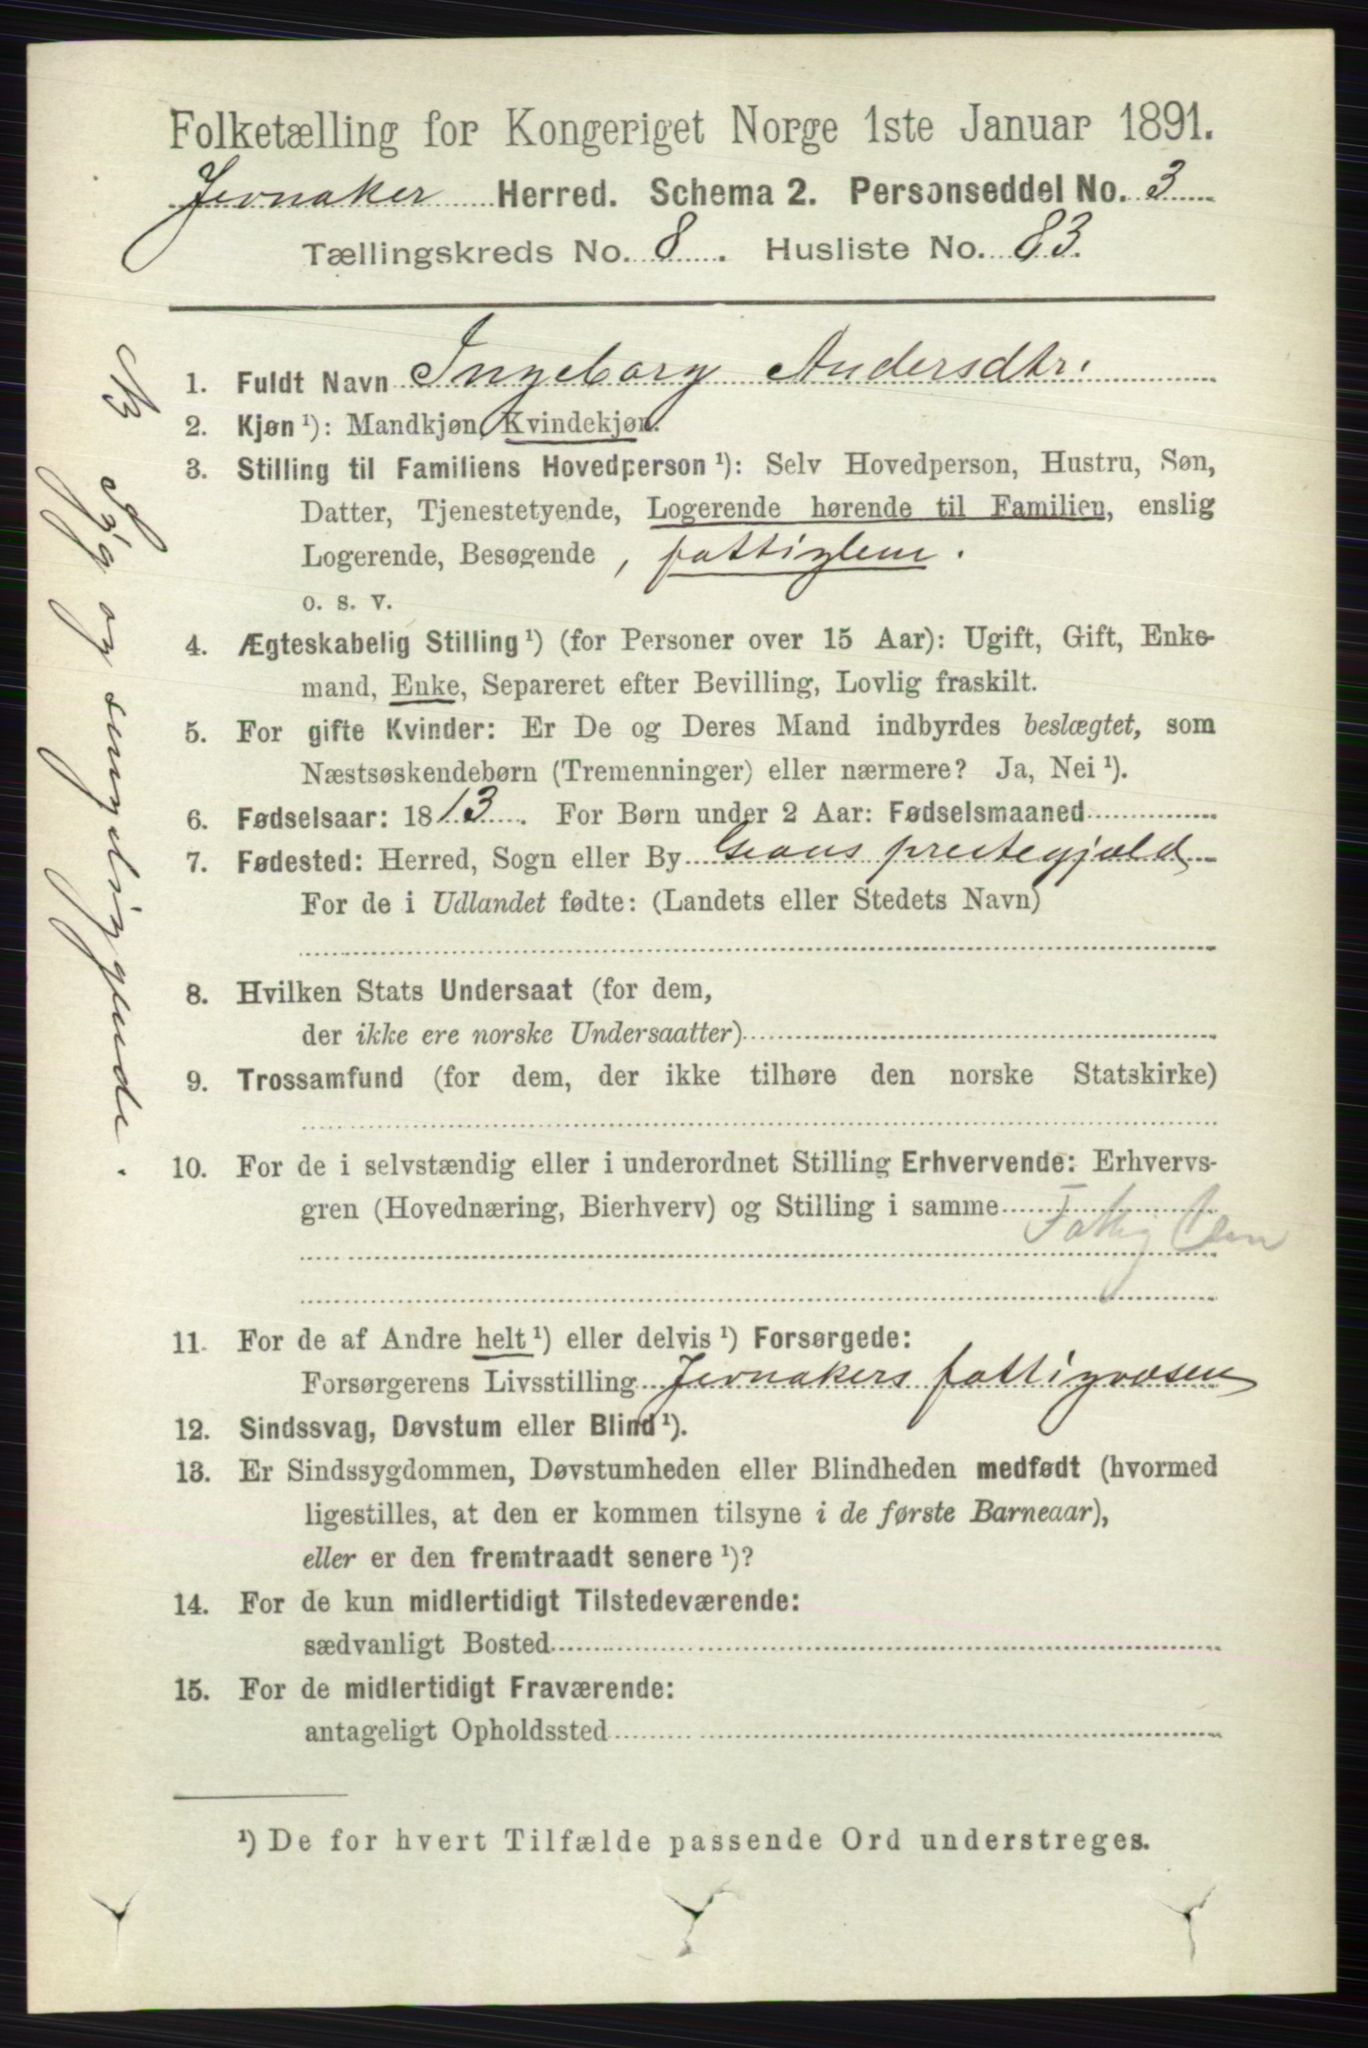 Folketælling for Kongeriget Norge 1ste Januar 1891.
Jevnaker Herred. Schema 2. Personseddel No. 3
Tællingskreds No. 8. Husliste No. 83.
1. Fuldt Navn Ingeborg Andersdtr.
2. Kjøn ¹): Mandkjøn, Kvindekjøn.
3. Stilling til Familiens Hovedperson ¹): Selv Hovedperson, Hustru, Søn,
Datter, Tjenestetyende, Logerende hørende til Familien, enslig
Logerende, Besøgende, fattiglem.
o. s. v.
4. Ægteskabelig Stilling ¹) (for Personer over 15 Aar): Ugift, Gift, Enke-
mand, Enke, Separeret efter Bevilling, Lovlig fraskilt.
5. For gifte Kvinder: Er De og Deres Mand indbyrdes beslægtet, som
Næstsøskendebørn (Tremenninger) eller nærmere? Ja, Nei ¹).
6. Fødselsaar: 1813. For Børn under 2 Aar: Fødselsmaaned
7. Fødested: Herred, Sogn eller By Grans prestegjæld
For de i Udlandet fødte: (Landets eller Stedets Navn)
8. Hvilken Stats Undersaat (for dem,
der ikke ere norske Undersaatter)
9. Trossamfund (for dem, der ikke tilhøre den norske Statskirke)
10. For de i selvstændig eller i underordnet Stilling Erhvervende: Erhvervs-
gren (Hovednæring, Bierhverv) og Stilling i samme
Fattig Lem
11. For de af Andre helt ¹) eller delvis ¹) Forsørgede:
Forsørgerens Livsstilling Jevnakers fattigvæsen
12. Sindssvag, Døvstum eller Blind ¹).
13. Er Sindssygdommen, Døvstumheden eller Blindheden medfødt (hvormed
ligestilles, at den er kommen tilsyne i de første Barneaar),
eller er den fremtraadt senere ¹)?
14. For de kun midlertidigt Tilstedeværende:
sædvanligt Bosted
15. For de midlertidigt Fraværende:
antageligt Opholdssted
¹) De for hvert Tilfælde passende Ord understreges.
og sengeliggende.